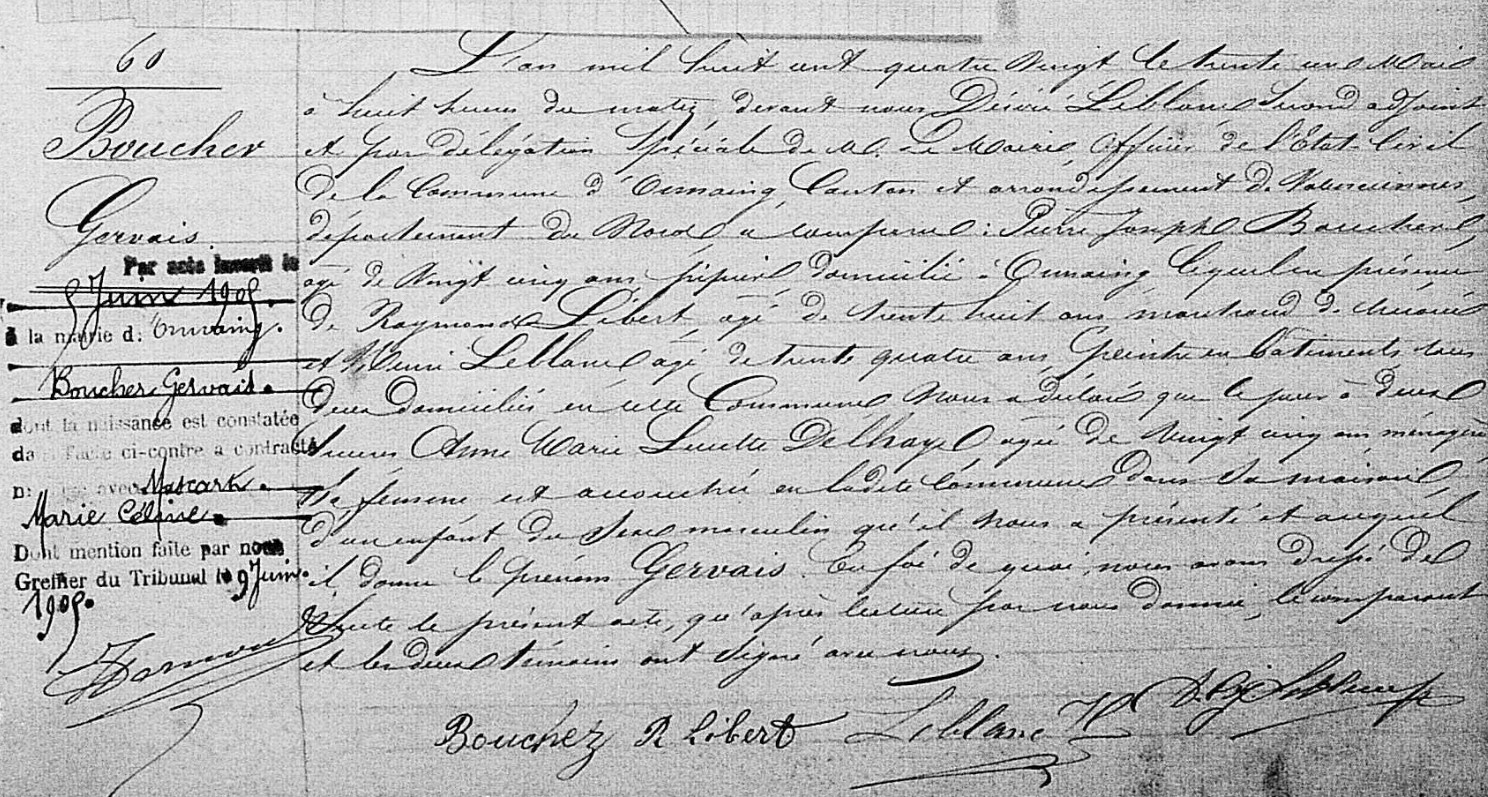 60
Boucher
Gervais.
Par acte inscrit le
5 Juin 1905.
à la mairie d: Onnaing.
Boucher Gervais.
dont la naissance est constatée
dans l'acte ci-contre a contracté
avec Mascart
Marie Céline
Dont mention faite par nous
Greffier du Tribunal le 9 Juin
1905.
L'an mil huit cent quatre Vingt le trente un Mai
à huit heures du matin, devant nous Désiré Leblanc Second adjoint
et par délégation Spéciale de M. Le Maire, Officier de l'Etat-Civil
de la Commune d'Onnaing, Canton et arrondissement de Valenciennes,
département du Nord, a comparu: Pierre Joseph Boucher,
agé de Vingt cinq ans, pipier, domicilié à Onnaing, lequel en présence
de Raymond Libert, agé de trente huit ans marchand de
et Henri Leblanc agé de trente quatre ans, peintre en batiments, tous
deux domiciliés en cette Commune, Nous a déclaré que le jour à deux
heures Anne Marie Lucette Delhaye, agée de Vingt cinq ans ménagère,
Sa femme est accouchée en ladite Commune dans Sa maison,
d'un enfant du Sexe masculin qu'il Nous a présenté et auquel
il donne le prénom Gervais. En foi de quoi, nous avons dressé de
Suite le présent acte, qu'après lecture par nous donnée, le comparant
et les deux témoins ont Signé avec nous.
Bouchez R Libert Leblanc H